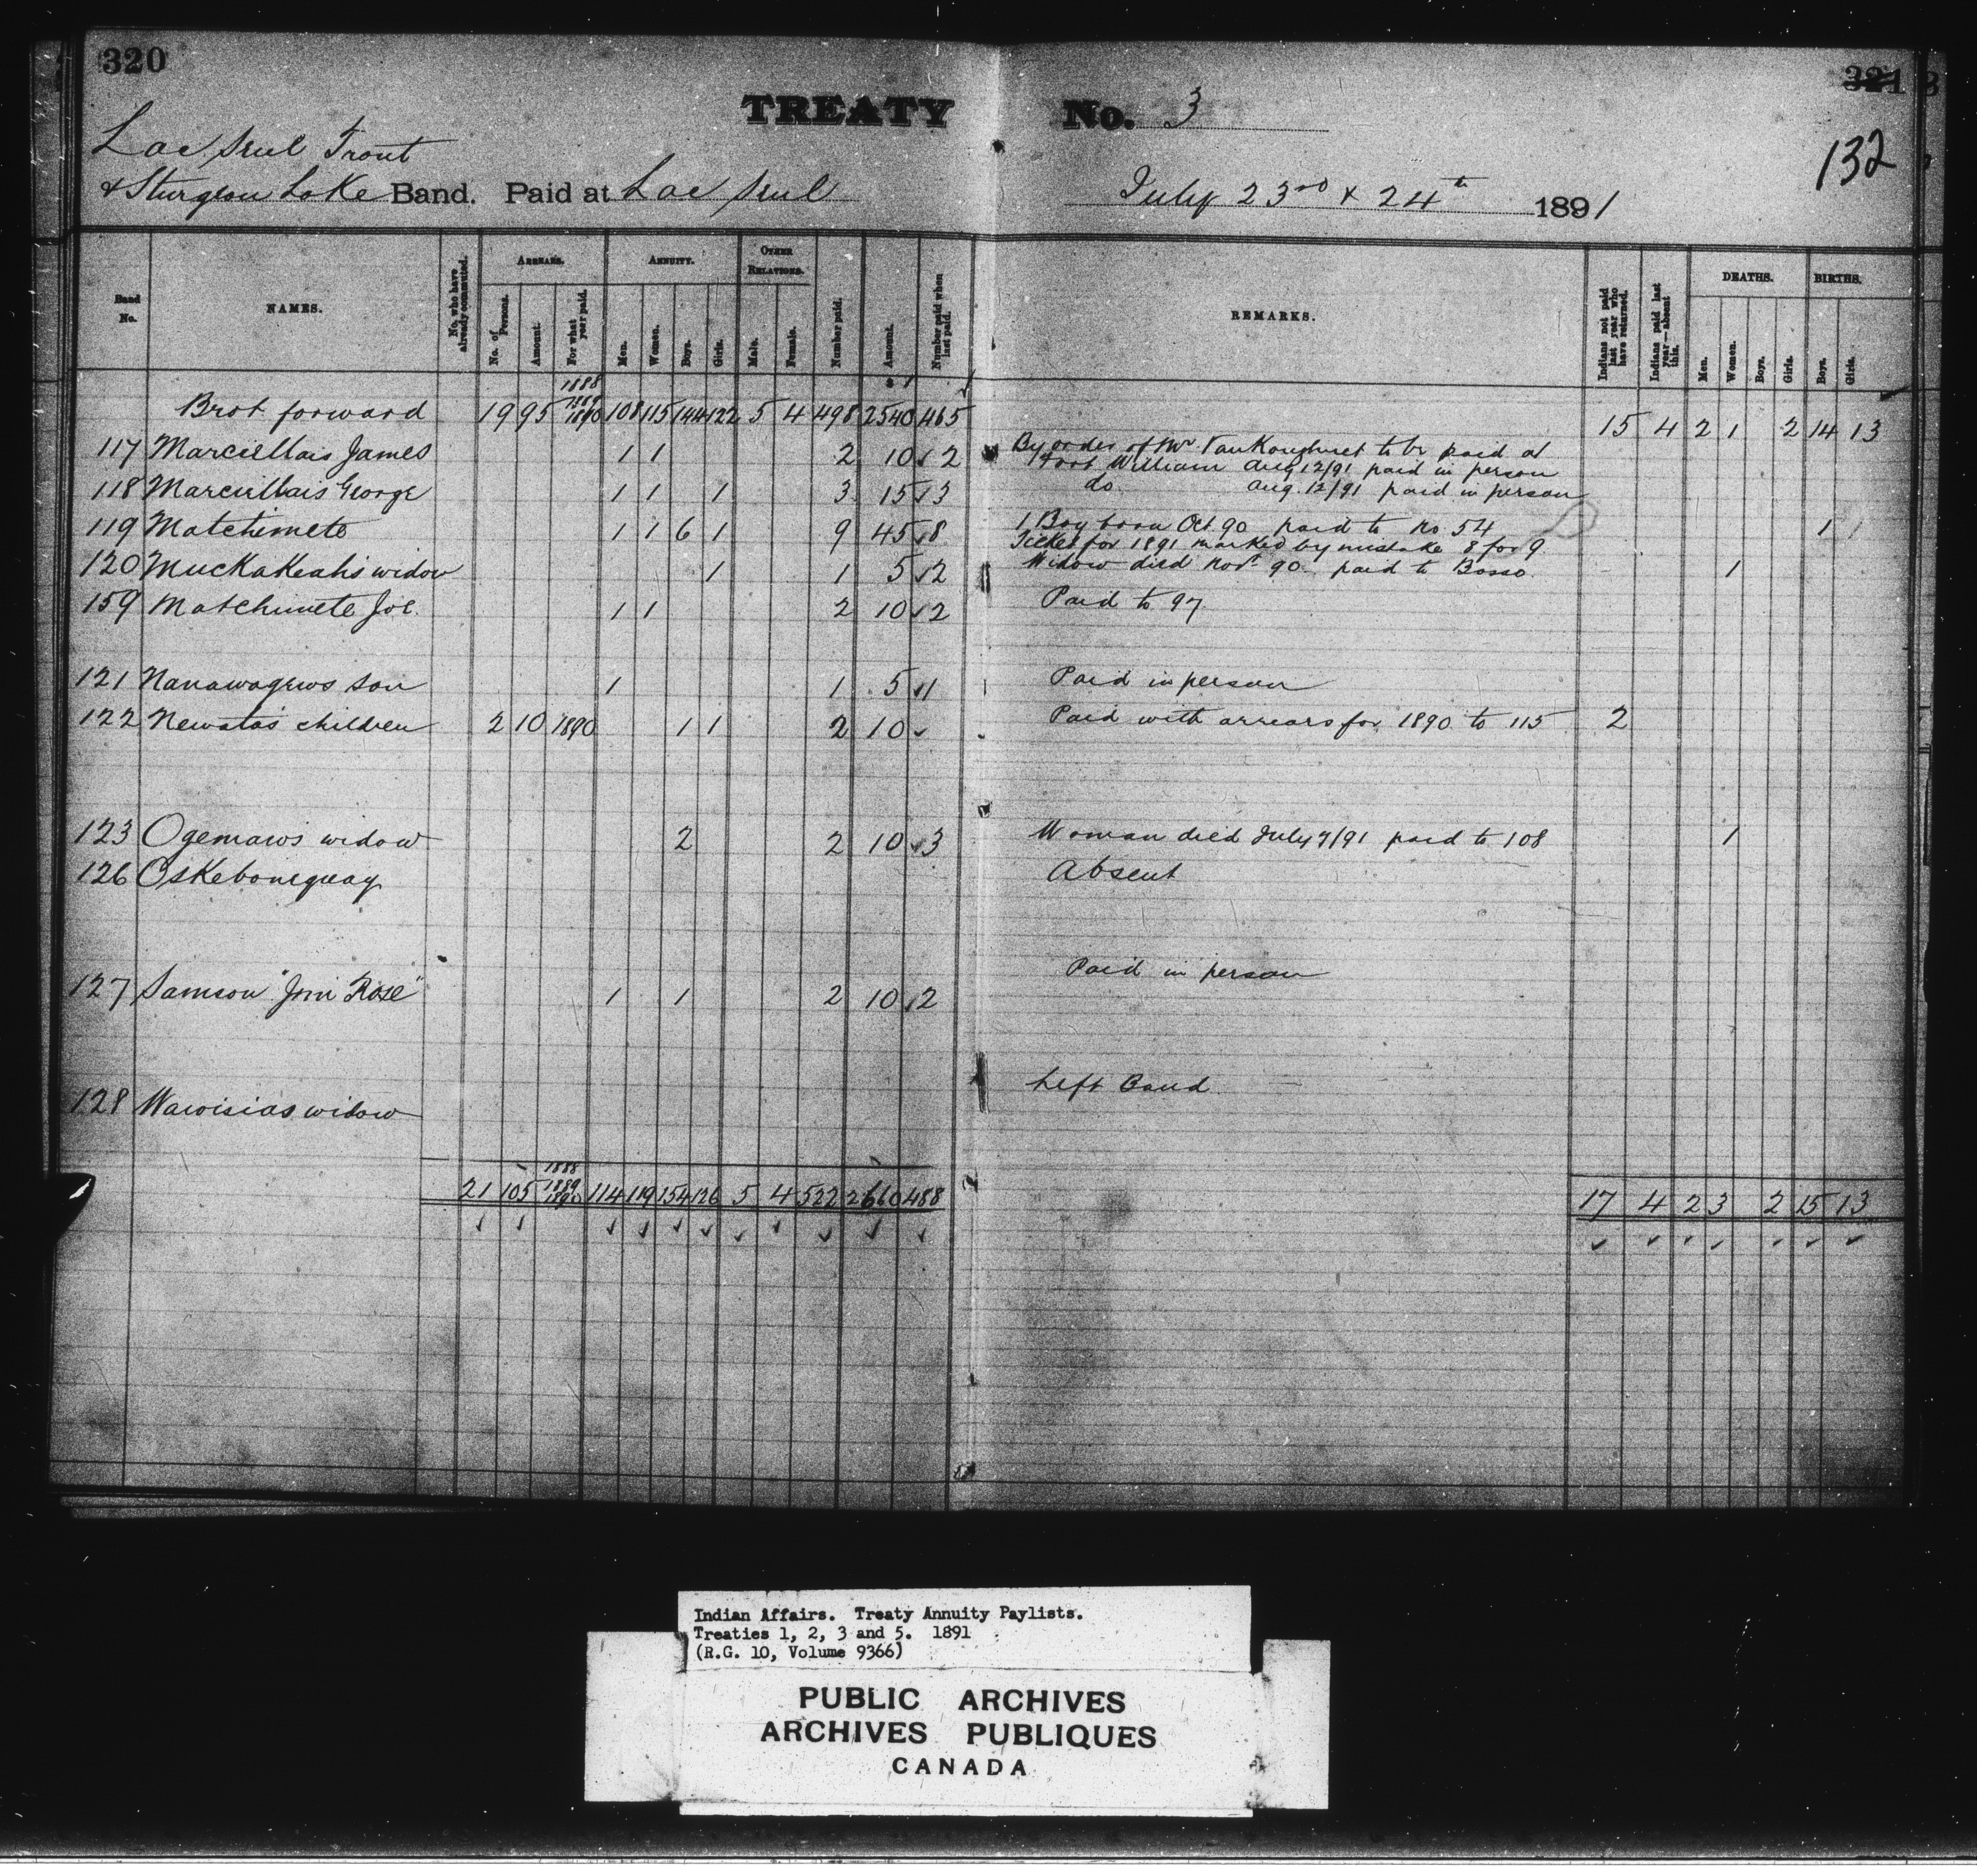 320
321
132
TREATY No. 3
Lac Seul Trout
& Sturgeon Lake Band. Paid at Lac Seul July 23rd & 24th 1891
Band No. NAMES. No. who have already commuted. ARREARS. No. of Persons. Amount. For what year paid. ANNUITY. Men. Women. Boys. Girls. OTHER RELATIONS. Male. Female. Number paid. Amount. Number paid when last paid. REMARKS. Indians not paid last year who have returned. Indians paid last year—absent this. DEATHS. Men. Women. Boys. Girls. BIRTHS. Boys. Girls.
1888
Brot forward 19 95 1889 1890 108 115 144 122 5 4 498 2540 465 15 4 2 1 2 14 13
117 Marciellais James 1 1 2 10 ✓ 2 By order of Mr VanKoughnet to be paid at
Fort William Aug 12/91 paid in person
118 Marciellais George 1 1 1 3 15 ✓ 3 do Aug. 12/91 paid in person
119 Matchimete 1 1 6 1 9 45 ✓ 8 1 Boy born Oct 90 paid to no 54 1
Ticket for 1891 marked by mistake 8 for 9
120 Muckakeahs widow 1 1 5 ✓ 2 Widow died Novr 90 paid to Bosso 1
159 Matchimete Joe. 1 1 2 10 ✓ 2 Paid to 97
121 Nanawagews son 1 1 5 ✓ 1 Paid in person
122 Newatas children 2 10 1890 1 1 2 10 ✓ Paid with arrears for 1890 to 115 2
123 Ogemaws widow 2 2 10 ✓ 3 Woman died July 7/91 paid to 108 1
126 Oskebonequay Absent
127 Samson "Jim Rose" 1 1 2 10 ✓ 2 Paid in person
128 Wawisias widow Left Band
1888
21 105 1889 1890 114 119 154 126 5 4 522 2660 488 17 4 2 3 2 15 13
Indian Affairs. Treaty Annuity Paylists.
Treaties 1, 2, 3 and 5. 1891
(R.G. 10, Volume 9366)
PUBLIC ARCHIVES
ARCHIVES PUBLIQUES
CANADA